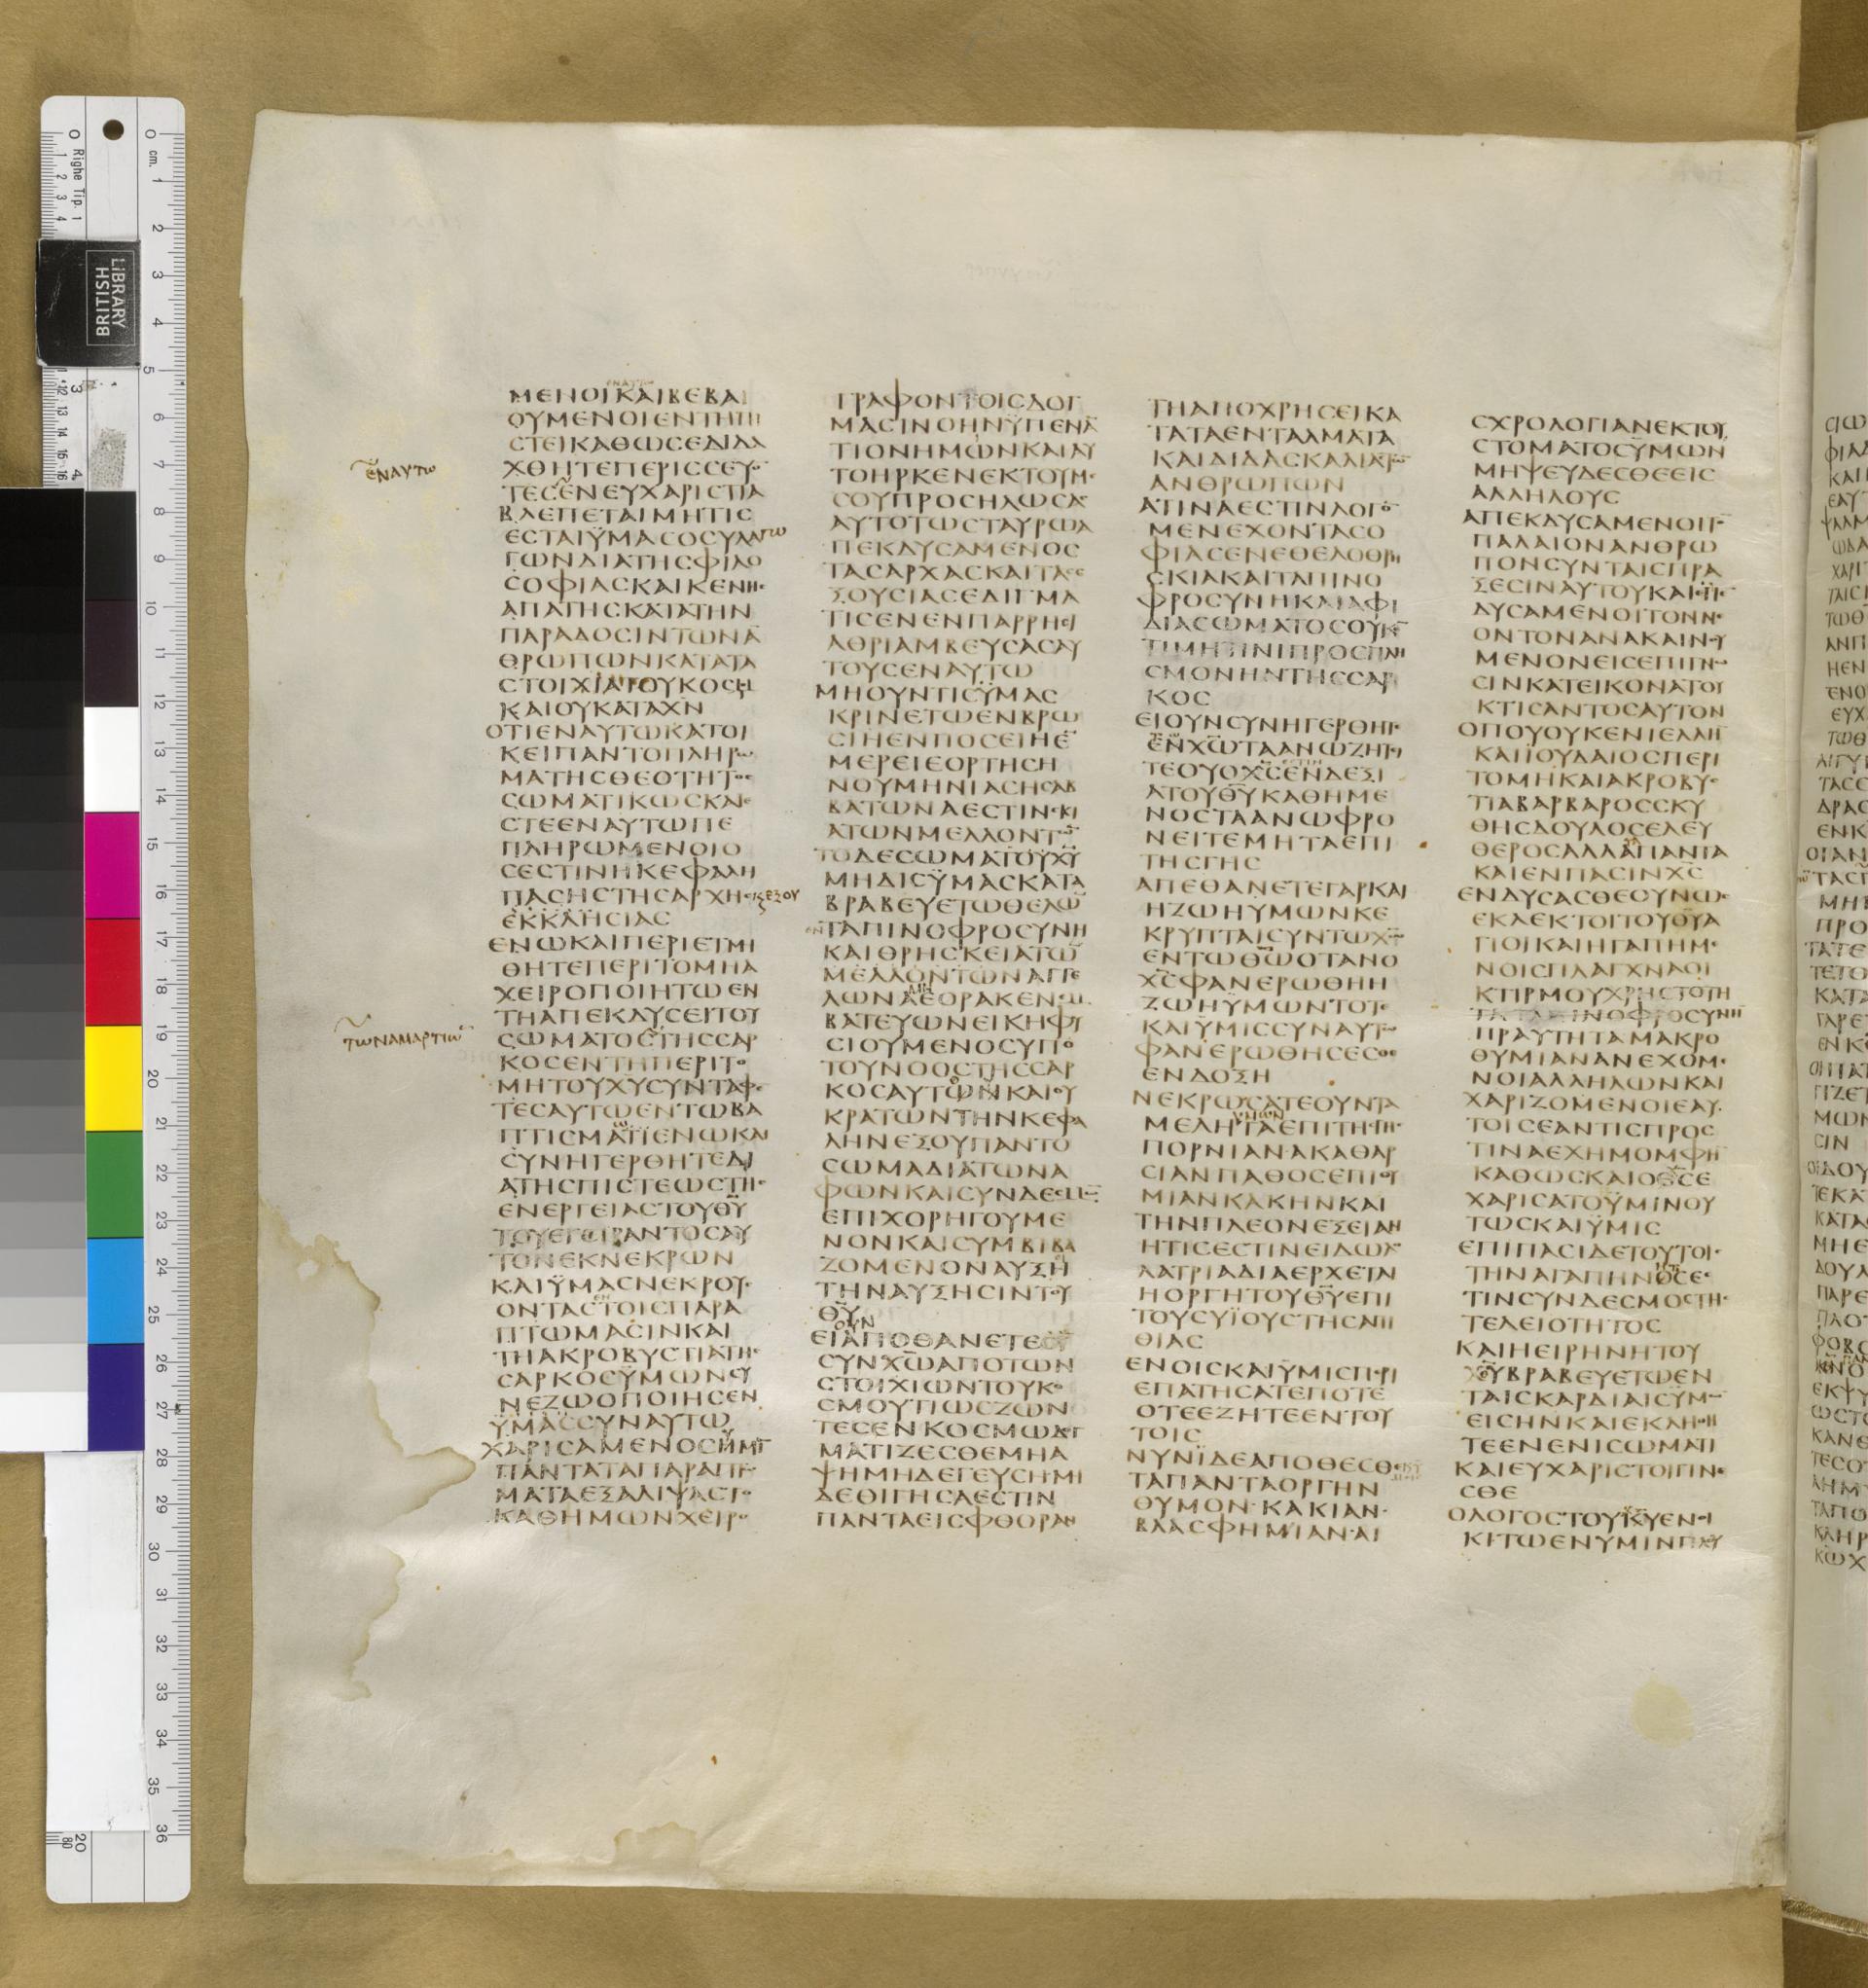 ΜΕΝΟΙΚΑΙΒΕΒΑΙ
ΟΥΜΕΝΟΙΕΝΤΗΠΙ
ϹΤΕΙΚΑΘΩϹΕΔΙΔΑ
ΧΘΗΤΕΠΕΡΙϹϹΕΥ
ΤΕϹΕΝΕΥΧΑΡΙϹΤΙΑ
ΒΛΕΠΕΤΑΙΜΗΤΙϹ
ΕϹΤΑΙΫΜΑϹΟϹΥΛΑΓΩ
ΓΩΝΔΙΑΤΗϹΦΙΛΟ
ϹΟΦΙΑϹΚΑΙΚΕΝΗϹ
ΑΠΑΤΗϹΚΑΤΑΤΗΝ
ΠΑΡΑΔΟϹΙΝΤΩΝΑ̅
ΘΡΩΠΩΝΚΑΤΑΤΑ
ϹΤΟΙΧΙΑΤΟΥΚΟϹΜΟΥ
ΚΑΙΟΥΚΑΤΑΧΝ
ΟΤΙΕΝΑΥΤΩΚΑΤΟΙ
ΚΕΙΠΑΝΤΟΠΛΗΡΩ
ΜΑΤΗϹΘΕΟΤΗΤΟϹ
ϹΩΜΑΤΙΚΩϹΚΑΙΕ
ϹΤΕΕΝΑΥΤΩΠΕ
ΠΛΗΡΩΜΕΝΟΙΟ
ϹΕϹΤΙΝΗΚΕΦΑΛΗ
ΠΑϹΗϹΤΗϹΑΡΧΗϹΚΕΞΟΥ
ΕΚΚΛΗϹΙΑϹ
ΕΝΩΚΑΙΠΕΡΙΕΤΜΗ
ΘΗΤΕΠΕΡΙΤΟΜΗΑ
ΧΕΙΡΟΠΟΙΗΤΩΕΝ
ΤΗΑΠΕΚΔΥϹΕΙΤΟΥ
ϹΩΜΑΤΟϹΤΗϹϹΑΡ
ΚΟϹΕΝΤΗΠΕΡΙΤΟ
ΜΗΤΟΥΧΥϹΥΝΤΑΦΕ
ΤΕϹΑΥΤΩΕΝΤΩΒΑ
ΠΤΙϹΜΑΤΙΕΝΩΚΑΙ
ϹΥΝΗΓΕΡΘΗΤΕΔΙ
ΑΤΗϹΠΙϹΤΕΩϹΤΗϹ
ΕΝΕΡΓΕΙΑϹΤΟΥΘΥ
ΤΟΥΕΓΕΙΡΑΝΤΟϹΑΥ
ΤΟΝΕΚΝΕΚΡΩΝ
ΚΑΙΫΜΑϹΝΕΚΡΟΥϹ
ΟΝΤΑϹΤΟΙϹΠΑΡΑ
ΠΤΩΜΑϹΙΝΚΑΙ
ΤΗΑΚΡΟΒΥϹΤΙΑΤΗϹ
ϹΑΡΚΟϹΫΜΩΝϹΥ
ΝΕΖΩΟΠΟΙΗϹΕΝ
ΫΜΑϹϹΥΝΑΥΤΩ
ΧΑΡΙϹΑΜΕΝΟϹΗΜΙ
ΠΑΝΤΑΤΑΠΑΡΑΠΤΩ
ΜΑΤΑΕΞΑΛΙΨΑϹΤΟ
ΚΑΘΗΜΩΝΧΕΙΡΟ
ΕΝΑΥΤΩ
ΤΩΝΑΜΑΡΤΙΩ̅
ΓΡΑΦΟΝΤΟΙϹΔΟΓ
ΜΑϹΙΝΟΗΝΫΠΕΝΑ̅
ΤΙΟΝΗΜΩΝΚΑΙΑΥ
ΤΟΗΡΚΕΝΕΚΤΟΥΜΕ
ϹΟΥΠΡΟϹΗΛΩϹΑϹ
ΑΥΤΟΤΩϹΤΑΥΡΩΑ
ΠΕΚΔΥϹΑΜΕΝΟϹ
ΤΑϹΑΡΧΑϹΚΑΙΤΑϹΕ
ΞΟΥϹΙΑϹΕΔΙΓΜΑ
ΤΙϹΕΝΕΝΠΑΡΡΗϹΙ
ΑΘΡΙΑΜΒΕΥϹΑϹΑΥ
ΤΟΥϹΕΝΑΥΤΩ
ΜΗΟΥΝΤΙϹΫΜΑϹ
ΚΡΙΝΕΤΩΕΝΒΡΩ
ϹΙΗΕΝΠΟϹΕΙΗΕ̅
ΜΕΡΕΙΕΟΡΤΗϹΗ
ΝΟΥΜΗΝΙΑϹΗϹΑΒ
ΒΑΤΩΝΑΕϹΤΙΝϹΚΙ
ΑΤΩΝΜΕΛΛΟΝΤΩ̅
ΤΟΔΕϹΩΜΑΤΟΥΧΥ
ΜΗΔΙϹΫΜΑϹΚΑΤΑ
ΒΡΑΒΕΥΕΤΩΘΕΛΩ̅
ΕΝΤΑΠΙΝΟΦΡΟϹΥΝΗ
ΚΑΙΘΡΗϹΚΕΙΑΤΩ̅
ΜΕΛΛΟΝΤΩΝΑΓΓΕ
ΛΩΝΑΕΟΡΑΚΕΝΕΜ
ΒΑΤΕΥΩΝΕΙΚΗΦΥ
ϹΙΟΥΜΕΝΟϹΥΠΟ
ΤΟΥΝΟΟϹΤΗϹϹΑΡ
ΚΟϹΑΥΤΩΝΚΑΙΟΥ
ΚΡΑΤΩΝΤΗΝΚΕΦΑ
ΛΗΝΕΞΟΥΠΑΝΤΟ
ϹΩΜΑΔΙΑΤΩΝΑ
ΦΩΝΚΑΙϹΥΝΔΕϹΜΩ̅
ΕΠΙΧΟΡΗΓΟΥΜΕ
ΝΟΝΚΑΙϹΥΜΒΙΒΑ
ΖΟΜΕΝΟΝΑΥΞΗ
ΤΗΝΑΥΞΗϹΙΝΤΟΥ
ΘΥ
ΕΙΑΠΟΘΑΝΕΤΕϹΥ̅
ϹΥΝΧΩΑΠΟΤΩΝ
ϹΤΟΙΧΙΩΝΤΟΥΚΟ
ϹΜΟΥΤΙΩϹΖΩΝ
ΤΕϹΕΝΚΟϹΜΩΔΟΓ
ΜΑΤΙΖΕϹΘΕΜΗΑ
ΨΗΜΗΔΕΓΕΥϹΗΜΗ
ΔΕΘΙΓΗϹΑΕϹΤΙΝ
ΠΑΝΤΑΕΙϹΦΘΟΡΑΝ
ΤΗΑΠΟΧΡΗϹΕΙΚΑ
ΤΑΤΑΕΝΤΑΛΜΑΤΑ
ΚΑΙΔΙΔΑϹΚΑΛΙΑϹΤΩ̅
ΑΝΘΡΩΠΩΝ
ΑΤΙΝΑΕϹΤΙΝΛΟΓΟ
ΜΕΝΕΧΟΝΤΑϹΟ
ΦΙΑϹΕΝΕΘΕΛΟΘΡΗ
ϹΚΙΑΚΑΙΤΑΠΙΝΟ
ΦΡΟϹΥΝΗΚΑΙΑΦΙ
ΔΙΑϹΩΜΑΤΟϹΟΥΚΕ̅
ΤΙΜΗΤΙΝΙΠΡΟϹΠΛΗ
ϹΜΟΝΗΝΤΗϹϹΑΡ
ΚΟϹ
ΕΙΟΥΝϹΥΝΗΓΕΡΘΗΤΕ
ΕΝΧΩΤΑΑΝΩΖΗΤΕΙ
ΤΕΟΥΟΧϹΕΝΔΕΞΙ
ΑΤΟΥΘΥΚΑΘΗΜΕ
ΝΟϹΤΑΑΝΩΦΡΟ
ΝΕΙΤΕΜΗΤΑΕΠΙ
ΤΗϹΓΗϹ
ΑΠΕΘΑΝΕΤΕΓΑΡΚΑΙ
ΗΖΩΗΥΜΩΝΚΕ
ΚΡΥΠΤΑΙϹΥΝΤΩΧΩ
ΕΝΤΩΘΩΟΤΑΝΟ
ΧϹΦΑΝΕΡΩΘΗΗ
ΖΩΗΫΜΩΝΤΟΤΕ
ΚΑΙΫΜΙϹϹΥΝΑΥΤΩ
ΦΑΝΕΡΩΘΗϹΕϹΘΕ
ΕΝΔΟΞΗ
ΝΕΚΡΩϹΑΤΕΟΥΝΤΑ
ΜΕΛΗΤΑΕΠΙΤΗϹΓΗϹ
ΠΟΡΝΙΑΝΑΚΑΘΑΡ
ϹΙΑΝΠΑΘΟϹΕΠΙΘΥ
ΜΙΑΝΚΑΚΗΝΚΑΙ
ΤΗΝΠΛΕΟΝΕΞΕΙΑΝ
ΗΤΙϹΕϹΤΙΝΕΙΔΩΛΟ
ΛΑΤΡΙΑΔΙΑΕΡΧΕΤΑΙ
ΗΟΡΓΗΤΟΥΘΥΕΠΙ
ΤΟΥϹΥΪΟΥϹΤΗϹΑΠΙ
ΘΙΑϹ
ΕΝΟΙϹΚΑΙΫΜΙϹΠΕΡΙ
ΕΠΑΤΗϹΑΤΕΠΟΤΕ
ΟΤΕΕΖΗΤΕΕΝΤΟΥ
ΤΟΙϹ
ΝΥΝΪΔΕΑΠΟΘΕϹΘΕ
ΤΑΠΑΝΤΑΟΡΓΗΝ
ΘΥΜΟΝ·ΚΑΚΙΑΝ·
ΒΛΑϹΦΗΜΙΑΝ·ΑΙ
ϹΧΡΟΛΟΓΙΑΝΕΚΤΟΥ
ϹΤΟΜΑΤΟϹΫΜΩΝ
ΜΗΨΕΥΔΕϹΘΕΕΙϹ
ΑΛΛΗΛΟΥϹ
ΑΠΕΚΔΥϹΑΜΕΝΟΙΤΟ̅
ΠΑΛΑΙΟΝΑΝΘΡΩ
ΠΟΝϹΥΝΤΑΙϹΠΡΑ
ΞΕϹΙΝΑΥΤΟΥΚΑΙΕΝ
ΔΥϹΑΜΕΝΟΙΤΟΝΝΕ
ΟΝΤΟΝΑΝΑΚΑΙΝΟΥ
ΜΕΝΟΝΕΙϹΕΠΙΓΝΩ
ϹΙΝΚΑΤΕΙΚΟΝΑΤΟΥ
ΚΤΙϹΑΝΤΟϹΑΥΤΟΝ
ΟΠΟΥΟΥΚΕΝΙΕΛΛΗ
ΚΑΙΪΟΥΔΑΙΟϹΠΕΡΙ
ΤΟΜΗΚΑΙΑΚΡΟΒΥϹ
ΤΙΑΒΑΡΒΑΡΟϹϹΚΥ
ΘΗϹΔΟΥΛΟϹΕΛΕΥ
ΘΕΡΟϹΑΛΛΑΠΑΝΤΑ
ΚΑΙΕΝΠΑϹΙΝΧϹ
ΕΝΔΥϹΑϹΘΕΟΥΝΩϹ
ΕΚΛΕΚΤΟΙΤΟΥΘΥΑ
ΓΙΟΙΚΑΙΗΓΑΠΗΜΕ
ΝΟΙϹΠΛΑΓΧΝΑΟΙ
ΚΤΙΡΜΟΥΧΡΗϹΤΟΤΗ
ΤΑΤΑΠΙΝΟΦΡΟϹΥΝΗ
ΠΡΑΥΤΗΤΑΜΑΚΡΟ
ΘΥΜΙΑΝΑΝΕΧΟΜΕ
ΝΟΙΑΛΛΗΛΩΝΚΑΙ
ΧΑΡΙΖΟΜΕΝΟΙΕΑΥ
ΤΟΙϹΕΑΝΤΙϹΠΡΟϹ
ΤΙΝΑΕΧΗΜΟΜΦΗ
ΚΑΘΩϹΚΑΙΟΘϹΕ
ΧΑΡΙϹΑΤΟΫΜΙΝΟΥ
ΤΩϹΚΑΙΫΜΙϹ
ΕΠΙΠΑϹΙΔΕΤΟΥΤΟΙϹ
ΤΗΝΑΓΑΠΗΝΟϹΕϹ
ΤΙΝϹΥΝΔΕϹΜΟϹΤΗϹ
ΤΕΛΕΙΟΤΗΤΟϹ
ΚΑΙΗΕΙΡΗΝΗΤΟΥ
ΧΥΒΡΑΒΕΥΕΤΩΕΝ
ΤΑΙϹΚΑΡΔΙΑΙϹΫΜΩ̅
ΕΙϹΗΝΚΑΙΕΚΛΗΘΗ
ΤΕΕΝΕΝΙϹΩΜΑΤΙ
ΚΑΙΕΥΧΑΡΙϹΤΟΙΓΙΝΕ
ϹΘΕ
ΟΛΟΓΟϹΤΟΥΚΥΕΝΟΙ
ΚΙΤΩΕΝΥΜΙΝΠΛΟΥ